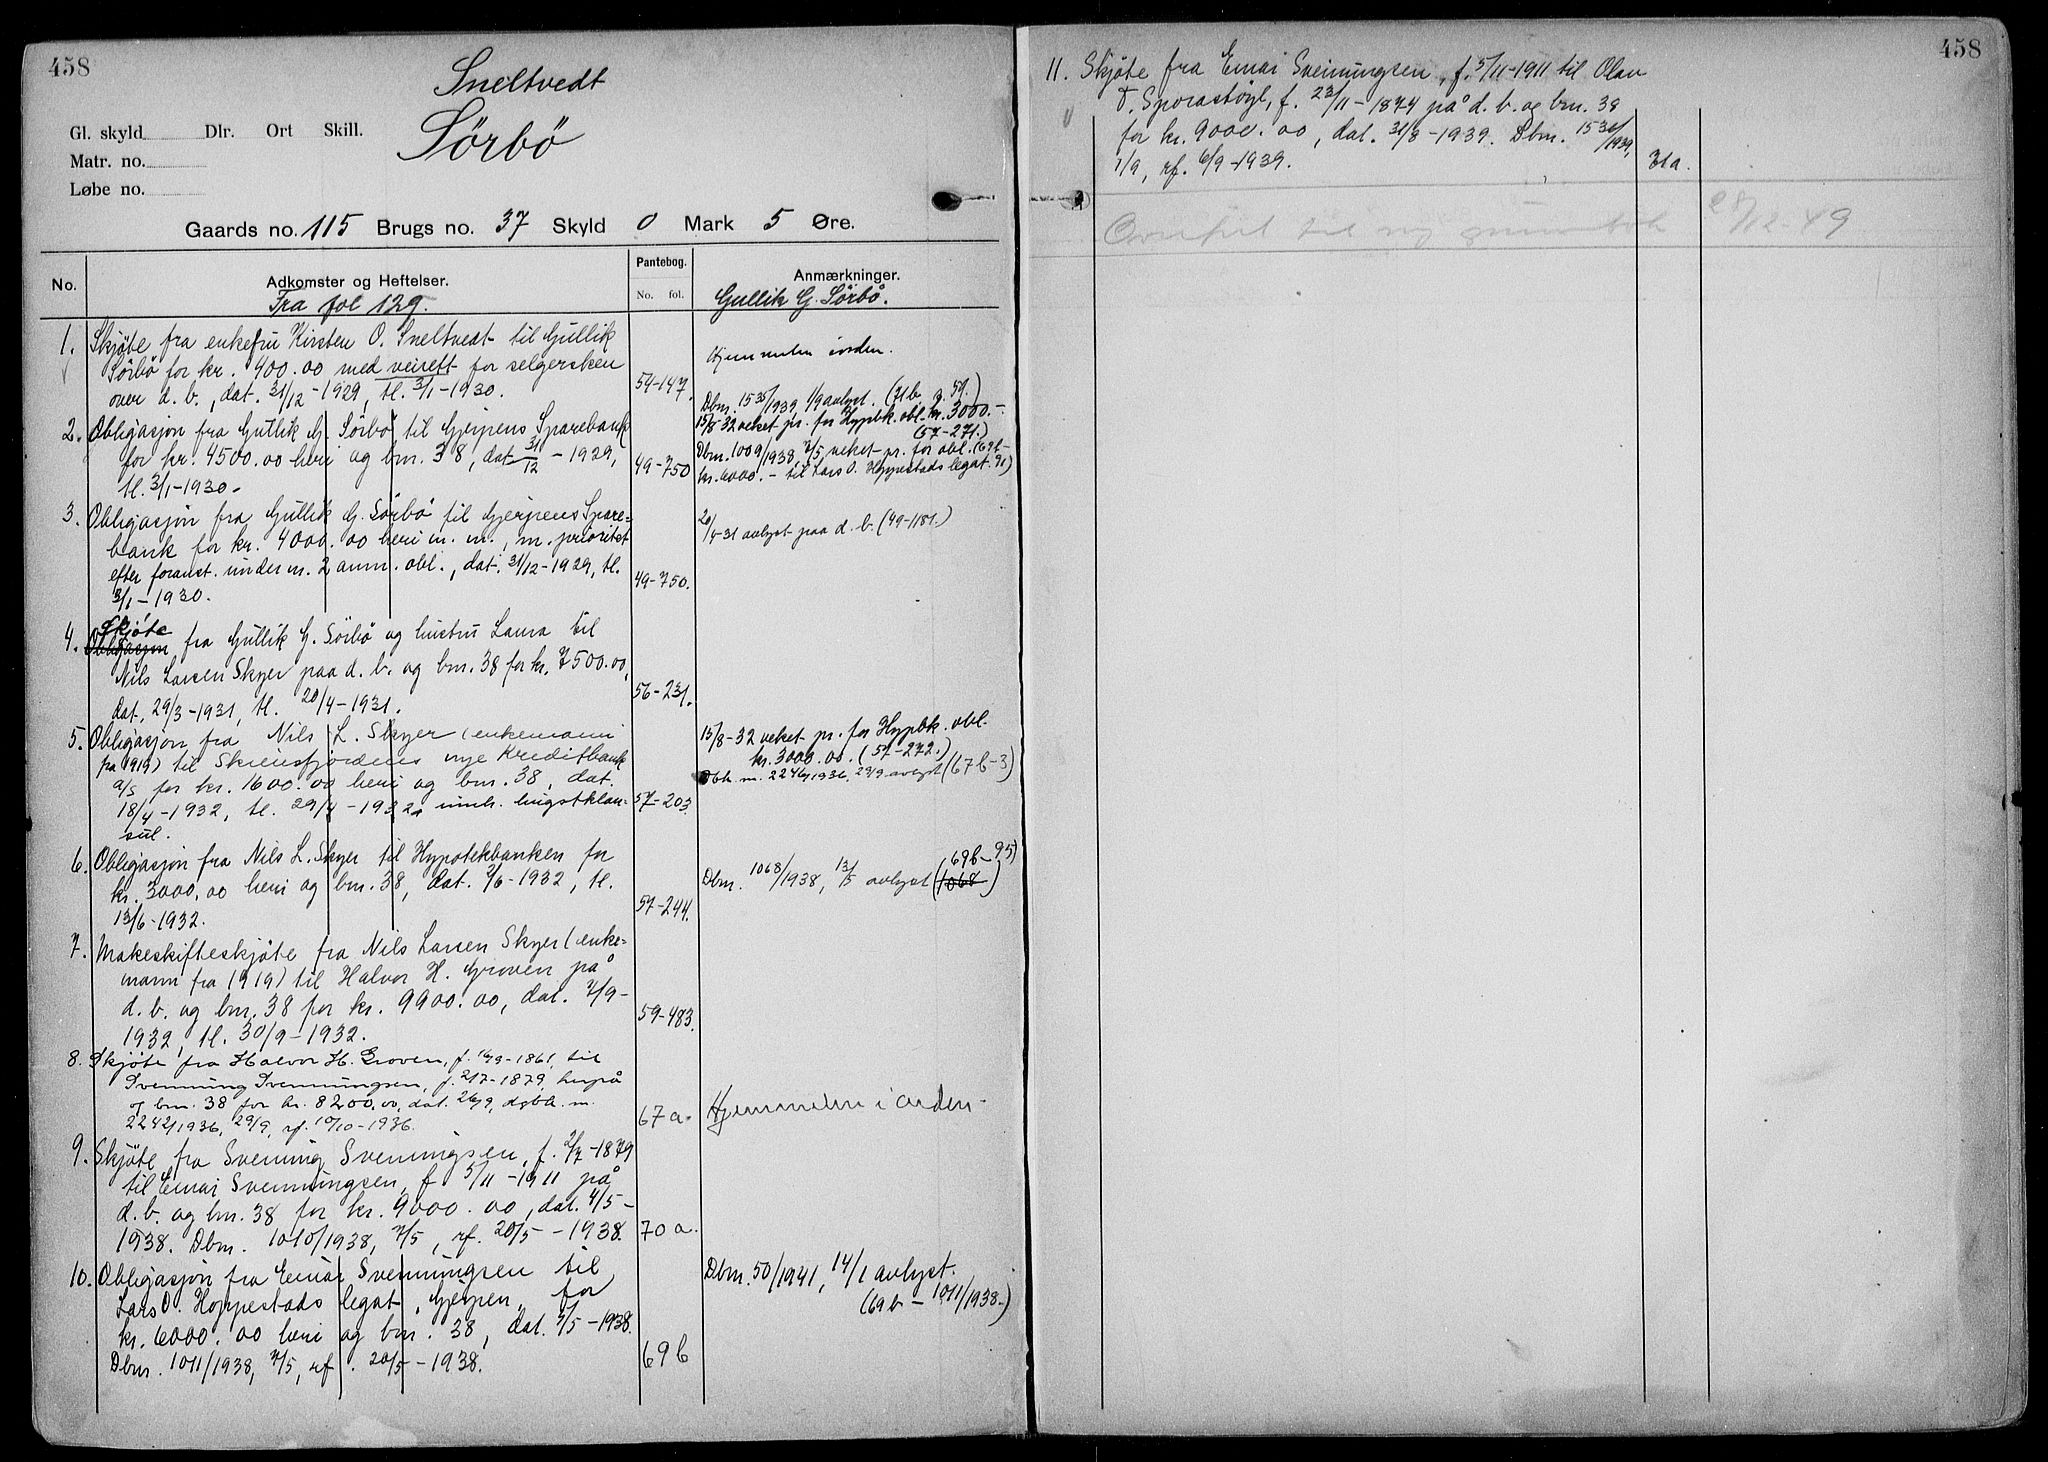 458
Sneltvedt
Sörbö
Gl. skyld Dlr. Ort Skill.
Matr. no.
Løbe no.
Gaards no. 115 Brugs no. 37 Skyld 0 Mark 5 Øre.
No. Adkomster og Heftelser. Pantebog. No. fol. Anmærkninger.
Fra fol 129. Gullik G. Sörbö.
1. Skjöte fra enkefru Kirsten O. Sneltvedt til Gullik
Sörbö for kr. 400.00 med veirett for selgersken
over d. b., dat. 31/12-1929, tl. 3/1-1930. 54-147.
Hjemmelen iorden.
2. Obligasjon fra Gullik G. Sörbö til Gjerpens Sparebank
for kr. 4500.00 heri og bnr. 38, dat. 31/12-1929,
tl. 3/1-1930. 49-750
Dbnr. 1535/1939, 1/9 avlyst. (71b p. 59.)
15/8 32 veket pr. for Hypbk. obl. kr. 3000.-
(57-271.)
Dbnr. 1009/1938 7/5 veket pr. for obl. (69b-
kr. 6000.- til Lars O. Hoppestads legat. 91)
3. Obligasjon fra Gullik G. Sörbö til Gjerpens Spare-
bank for kr. 4000.00 heri m. m., m. prioritet
efter foranst. under nr. 2 anm. obl., dat. 31/12-1929, tl.
3/1-1930. 49-750.
20/4-31 avlyst paa d. b. (49-1181.)
4. Skjöte
Obligasjon fra Gullik G. Sörbö og hustru Laura til
Nils Larsen Skyer paa d. b. og bnr. 38 for kr. 7500.00,
dat. 29/3-1931, tl. 20/4-1931. 56-231.
5. Obligasjon fra Nils L. Skyer (enkemann
fra 1919) til Skiensfjordens nye Kreditbank
a/s for kr. 1600.00 heri og bnr. 38, dat.
18/4-1932, tl. 29/4-1932, innh. hugstklau-
sul. 57-203.
15/8-32 veket pr. for Hypbk. obl.
kr. 3000.00. (57-272.)
Dbk. nr. 2246/1936, 29/9 avlyst (67b-3)
6. Obligasjon fra Nils L. Skyer til Hypotekbanken for
kr. 3000.00 heri og bnr. 38, dat. 2/6-1932, tl.
13/6-1932. 57-244.
69b-95)
Dbnr. 1068/1938, 13/5 avlyst (1068)
7. Makeskifteskjöte fra Nils Larsen Skyer (enke-
mann fra 1919) til Halvor H. Groven på
d. b. og bnr. 38 for kr. 9900.00, dat. 7/9-
1932, tl. 30/9-1932. 59-483.
8. Skjöte fra Halvor H. Groven, f. 16/9-1861, til
Svenning Svenningsen, f. 2/7-1879, herpå
og bnr. 38 for kr. 8200.00, dat. 26/9, dgbk. nr.
2242/1936, 29/9, rf. 10/10-1936. 67a.
Hjemmelen i orden-
9. Skjöte fra Svenning Svenningsen, f. 2/7-1879
til Einar Svenningsen, f 5/11-1911 på
d. b. og bnr. 38 for kr. 9000.00, dat. 4/5-
1938. Dbnr. 1010/1938, 7/5, rf. 20/5-1938. 70a.
10. Obligasjon fra Einar Svenningsen til
Lars O. Hoppestads legat, Gjerpen, for
kr. 6000.00 heri og bnr. 38, dat. 7/5-1938.
Dbnr. 1011/1938, 7/5, rf. 20/5-1938. 69b
Dbnr. 50/1941, 14/1 avlyst.
(69b-1011/1938.)
458
11. Skjöte fra Einar Sveinungsen, f. 5/11-1911 til Olav
T. Sporastøyl, f. 23/11-1874 på d. b. og bnr. 38
for kr. 9000.00, dat. 31/8-1939. Dbnr. 1536/1939,
1/9, rf. 6/9-1939. 71a.
Overført til ny grunnbok 28/12-49